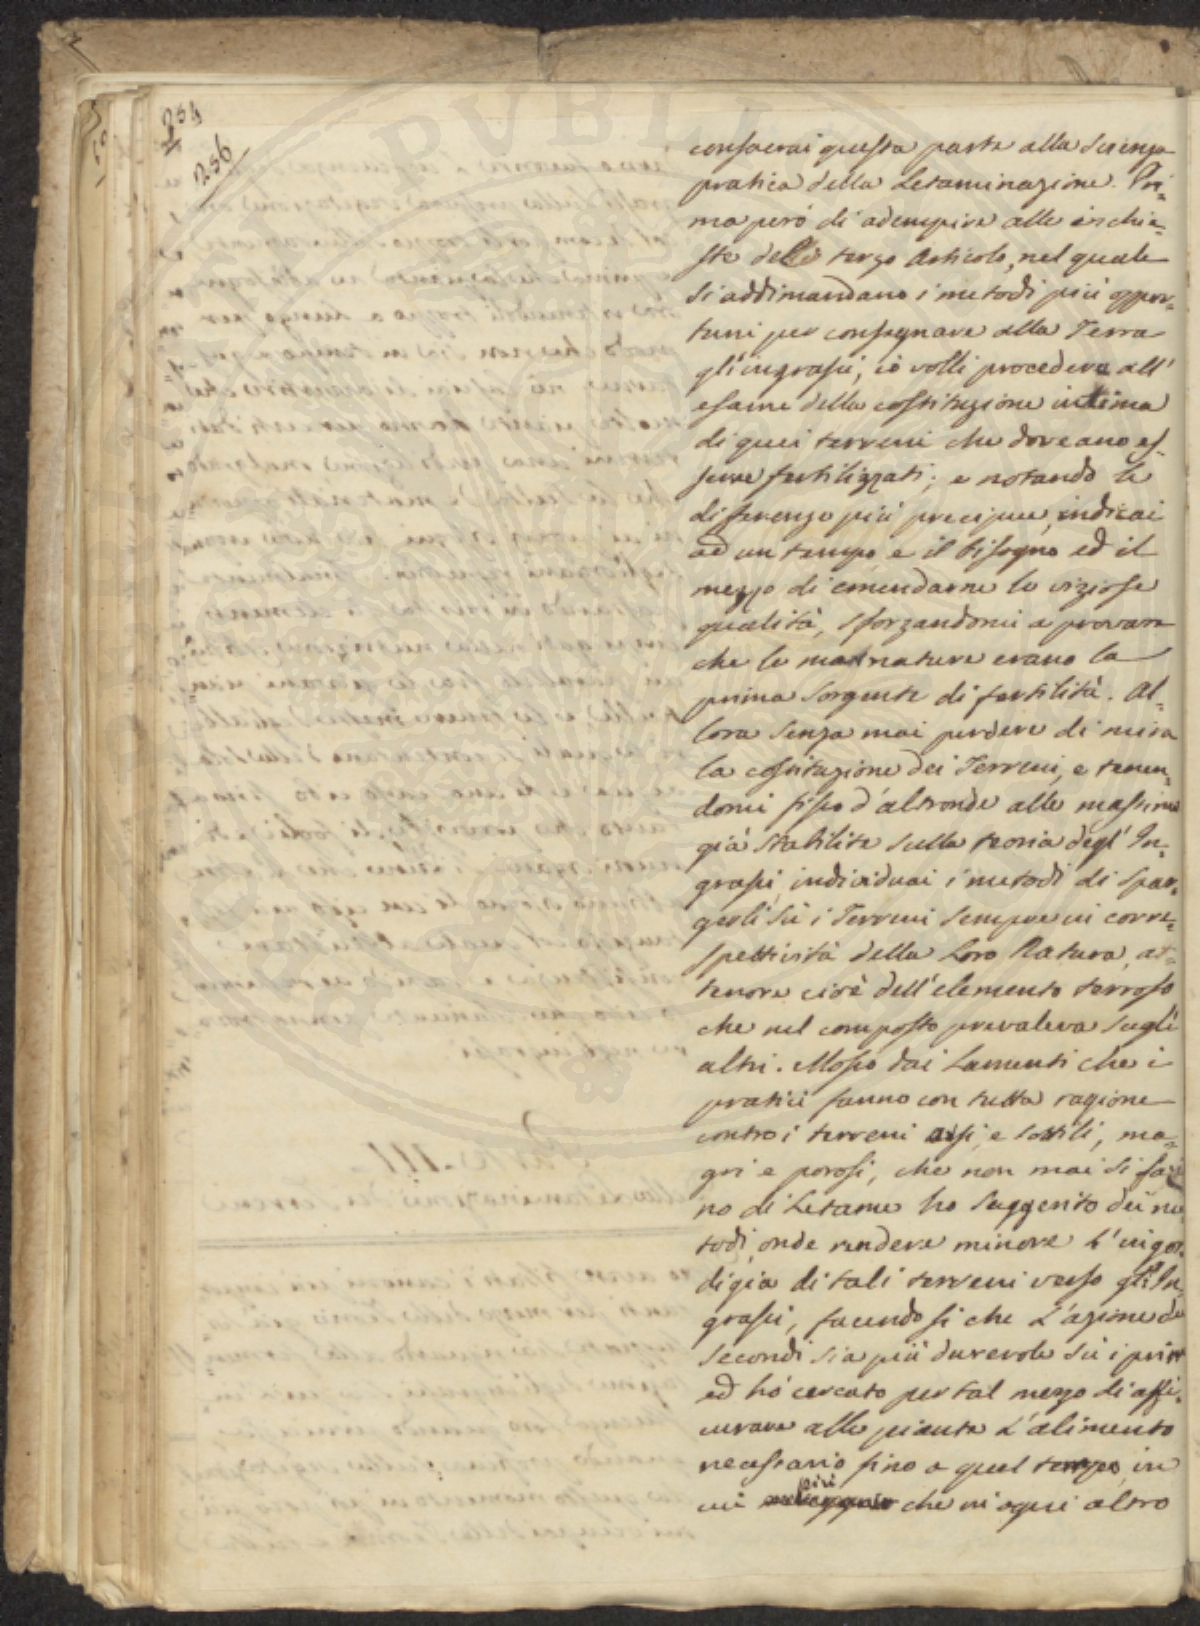 254
256
consacrai questa parte alla Scienza
pratica della Letaminazione. Pri-
ma peró di adempire alle inchie-
ste dello terzo Articolo, nel quale
si addimandano i metodi più oppor-
tuni per consegnare alla Terra
gl'ingrassi, io volli procedere all'
esame della costituzione intima
di quei terreni che doveano es-
sere fertilizzati; e notando le
differenze più precipue, indicai
ad un tempo e il bisogno ed il
mezzo di emendarne le viziose
qualità, sforzandomi a provare
che le marnature erano la
prima Sorgente di fertilità. Al-
lora Senza mai perdere di mira
la costituzione dei Terreni, e tenen-
domi fisso d'altronde alle massime
già Stabilite Sulla teoria degl'In-
grassi, individuai i metodi di Spar-
gerli Sù i Terreni Sempre in corre-
spettività della Loro Natura, at-
tenore cioè dell'elemento terroso
che nel composto prevaleva Sugli
altri. Mosso dai Lamenti che i
pratici fanno con tutta ragione
contro i terreni assi, e Sottili, ma-
gri e porosi, che non mai si sazi
no di Letame ho Suggerito dei me
todi, onde rendere minore L'ingor-
digia di tali terreni verso gli In-
grassi, facendo si che L'azione de
Secondi sia più durevole Sù i primi
ed hò cercato per tal mezzo di assi-
curare alle piante L'alimento
necessario fino a quel tempo in
cui più che in ogni altro